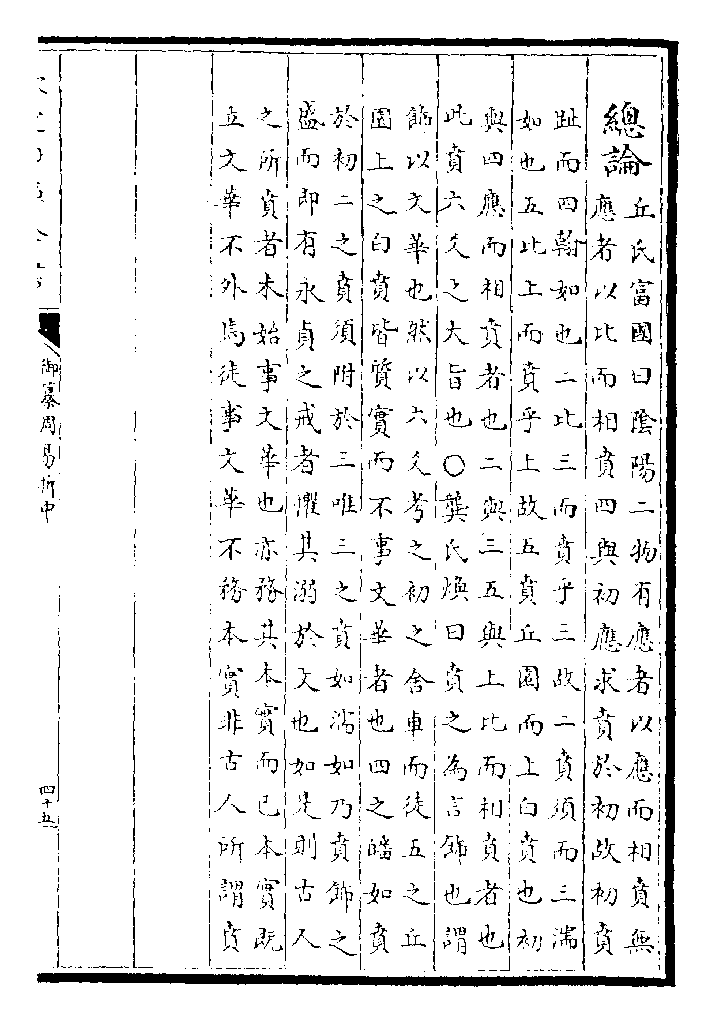 總論
丘氏富國曰陰陽二物有應者以應而相賁無
應者以比而相賁四與初應求賁於初故初賁
趾而四翰如也二比三而賁乎三故二賁須而三濡
如也五比上而賁乎上故五賁丘園而上白賁也初
與四應而相賁者也二與三五與上比而相賁者也
此賁六爻之大旨也○龔氏煥曰賁之為言飾也謂
飾以文華也然以六爻考之初之舍車而徒五之丘
園上之白賁皆質實而不事文華者也四之皤如賁
於初二之賁須附於三唯三之賁如濡如乃賁飾之
盛而即有永貞之戒者懼其溺於文也如是則古人
之所賁者未始事文華也亦務其本實而已本實既
立文華不外焉徒事文華不務本實非古人所謂賁
御纂周易折中
四十五